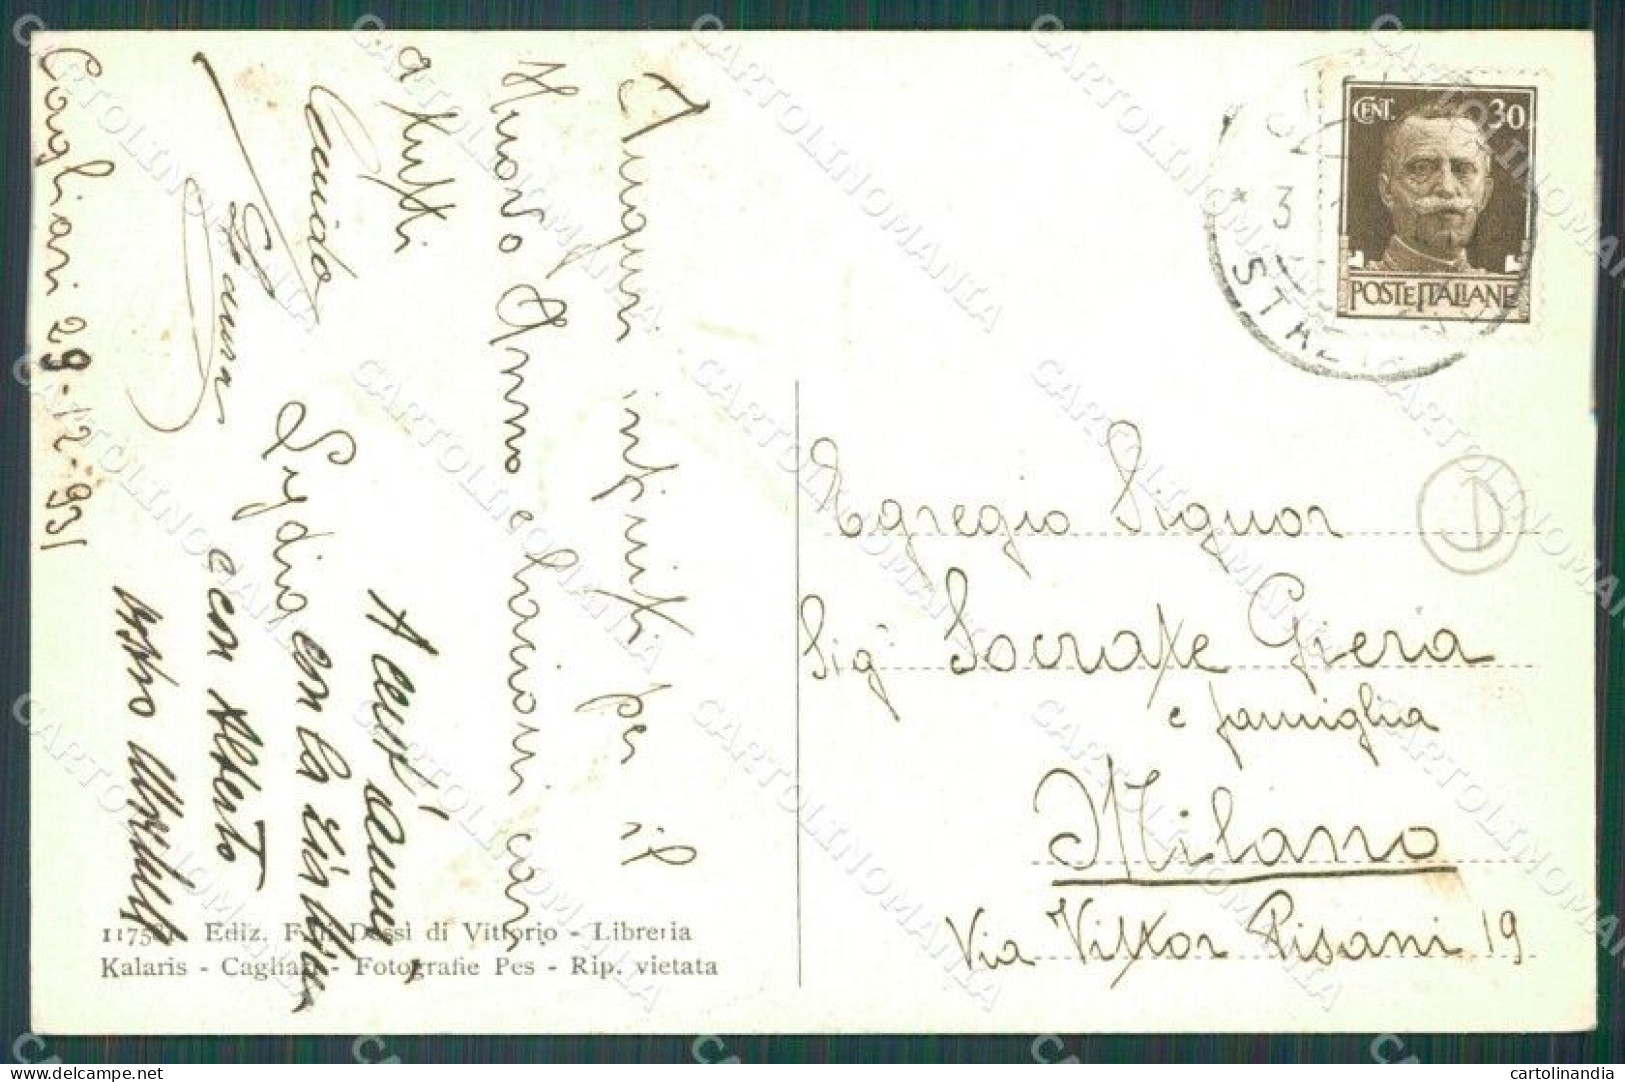 Auguri infiniti per il
Nuovo Anno e bacioni cari
a tutti
Guido
Laura
Lydia
Cagliari 29-12-931
A cent'anni
con la
e con Alberto
vostro
117581 - Ediz. F.lli Dessì di Vittorio - Libreria
Kalaris - Cagliari - Fotografie Pes - Rip. vietata
CENT. 30
POSTE ITALIANE
* 3
Egregio Signor
Sigr Socrate Giera
e famiglia
Milano
Via Vittor Pisani 19
D
CARTOLINOMANIA
delcampe.net
cartolinandia